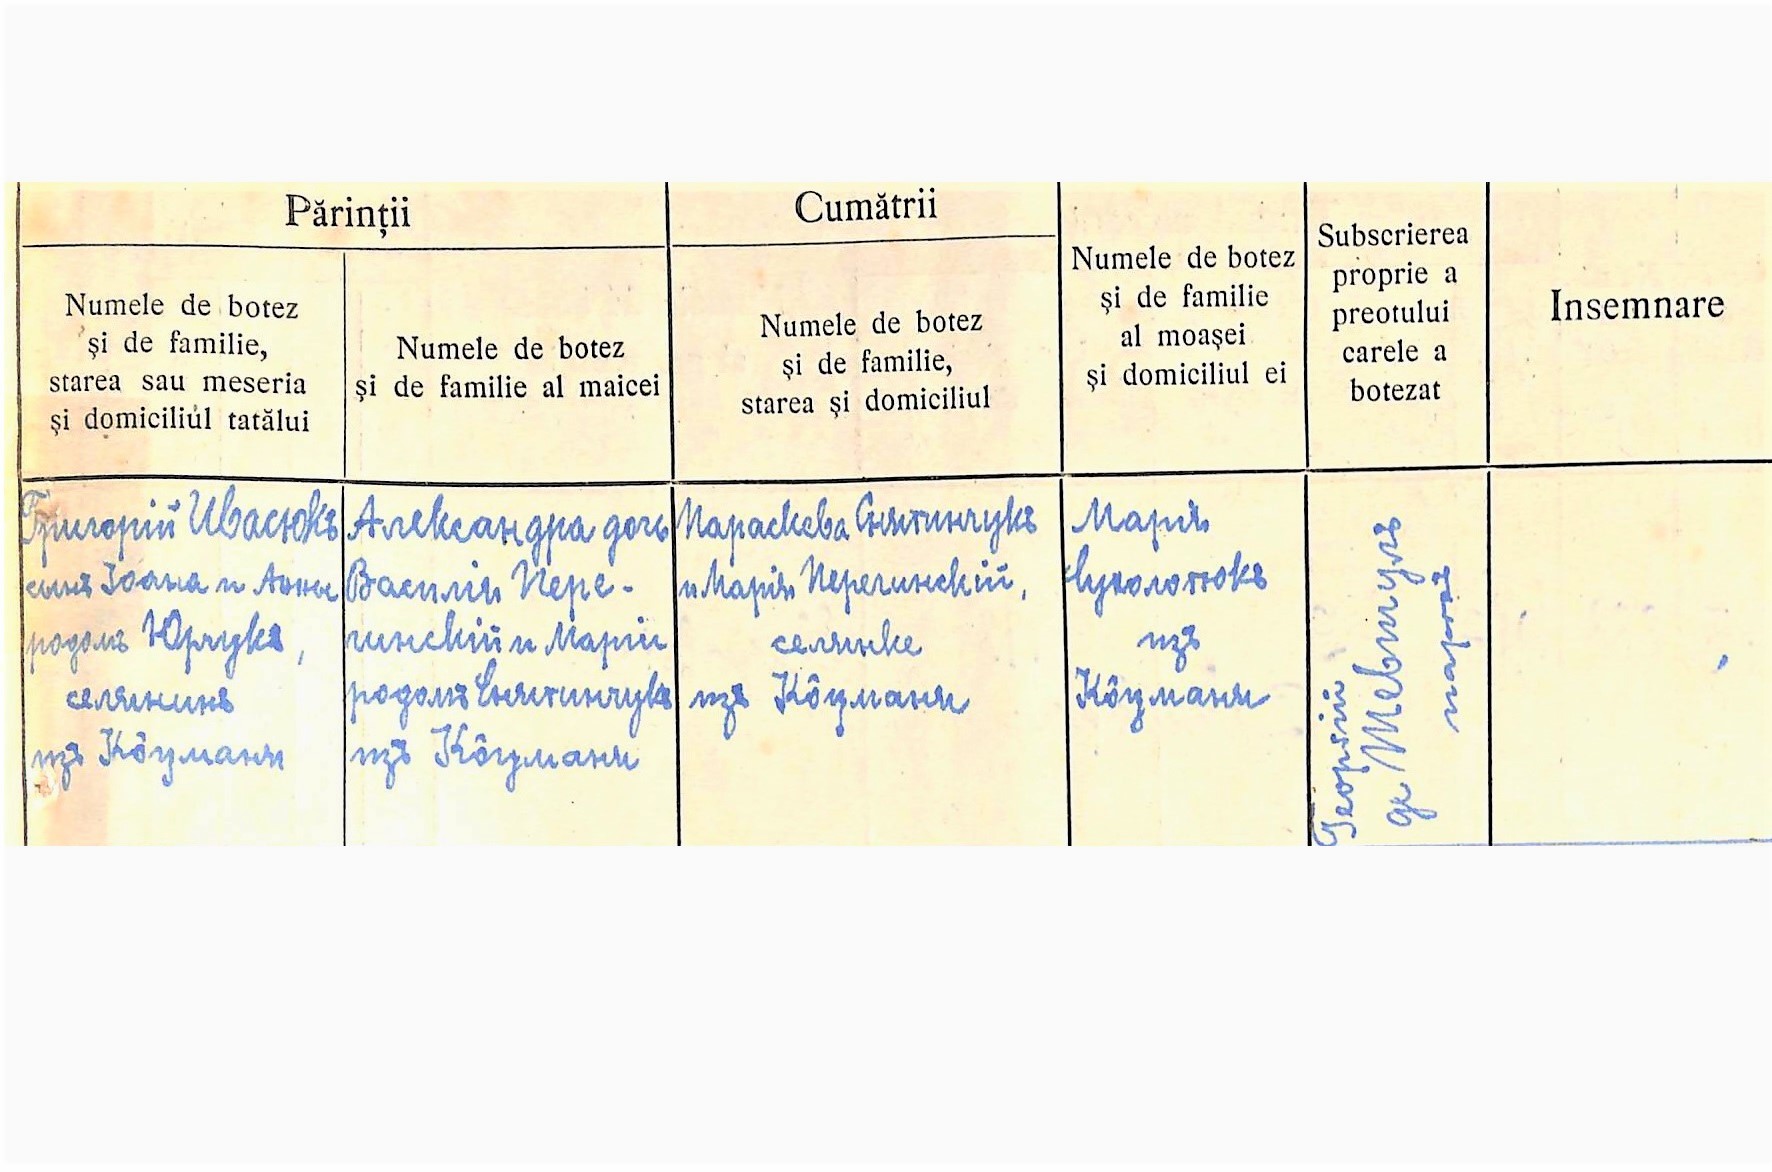 Părinții
Numele de botez
și de familie,
starea sau meseria
și domiciliul tatălui
Numele de botez
și de familie al maicei
Cumătrii
Numele de botez
și de familie,
starea și domiciliul
Numele de botez
și de familie
al moașei
și domiciliul ei
Subscrierea
proprie a
preotului
carele a
botezat
Insemnare
Григорій Ивасюкъ
сынъ Іоана и Анны
родомъ Юрчукъ,
селянинъ
изъ Кôцманя
Александра дочь
Василія Пере-
гинскій и Маріи
родомъ Снятинчукъ
изъ Кôцманя
Параскева Снятинчукъ
и Марія Перегинскій,
селянке
изъ Кôцманя
Марія
изъ
Кôцманя
Георгій
де
парохъ